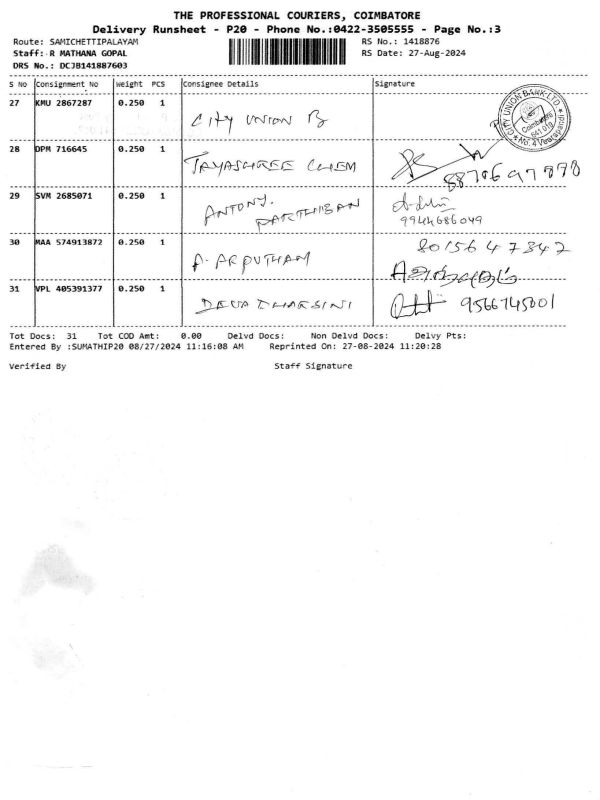 THE PROFESSIONAL COURIERS, COIMBATORE
Delivery Runsheet - P20 - Phone No.:0422-3505555 - Page No.:3
Route: SAMICHETTIPALAYAM RS No.: 1418876
Staff: R MATHANA GOPAL RS Date: 27-Aug-2024
DRS No.: DCJB141887603
S No Consignment No Weight PCS Consignee Details Signature
27 KMU 2867287 0.250 1 CITY UNION B
CITY UNION BANK LTD. Coimbatore 641 019 No. 4 Veerapandi
28 DPM 716645 0.250 1 JAYASHREE CHEM
29 SVM 2685071 0.250 1 ANTONY. PARTHIBAN 9944686049
30 MAA 574913872 0.250 1 A. ARPUTHAM 8015647347
அற்புதம்
31 VPL 405391377 0.250 1 DEVA DHARSINI 9566745001
Tot Docs: 31 Tot COD Amt: 0.00 Delvd Docs: Non Delvd Docs: Delvy Pts:
Entered By :SUMATHIP20 08/27/2024 11:16:08 AM Reprinted On: 27-08-2024 11:20:28
Verified By Staff Signature